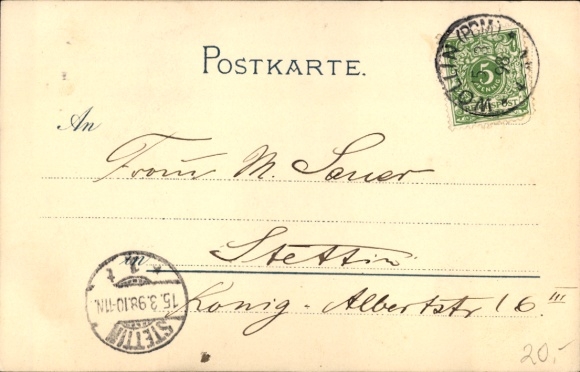 POSTKARTE.
WOLLIN (POM.) 98
5
PFENNIG
An
Frau M. Sauer
in Stettin
König-Albertstr 16. III
STETTIN 1 t
15.3.98.10-11N.
20,-